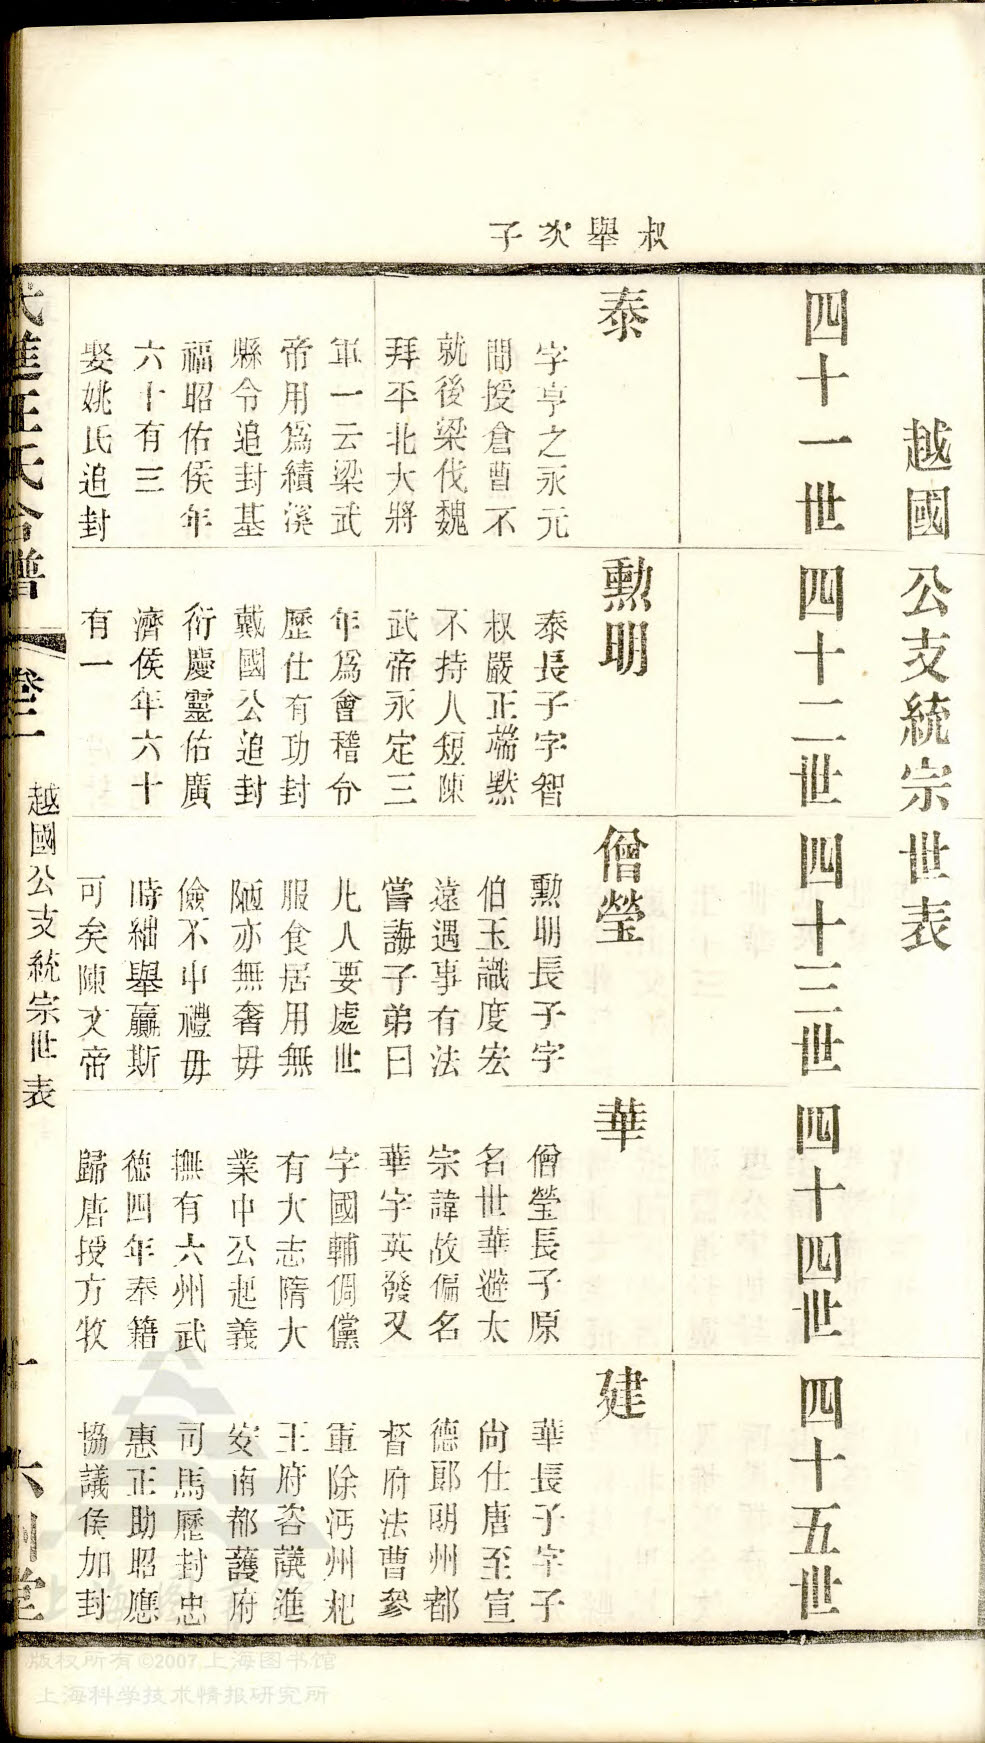 越國公支統宗世表
四十一世
四十二世
四十三世
四十四世
四十五世
叔舉次子
泰
字亨之永元
間授倉曹不
就後梁伐魏
拜平北大將
軍一云梁武
帝用爲績溪
縣令追封基
福昭佑侯年
六十有三
娶姚氏追封
勲明
泰長子字智
叔嚴正端默
不持人短陳
武帝永定三
年爲會稽令
歷仕有功封
戴國公追封
衍慶靈佑廣
濟侯年六十
有一
僧瑩
勲明長子字
伯玉識度宏
遠遇事有法
嘗誨子弟曰
凡人要處世
服食居用無
陋亦無奢毋
儉不中禮毋
時絀舉贏斯
可矣陳文帝
華
僧瑩長子原
名世華避太
宗諱故偏名
華字英發又
字國輔倜儻
有大志隋大
業中公起義
撫有六州武
德四年奉籍
歸唐授方牧
建
華長子字子
尚仕唐至宣
德郎朗州都
督府法曹參
軍除沔州杞
王府咨議進
安南都護府
司馬歷封忠
惠正助昭應
協議侯加封
武進汪氏合譜
卷二
越國公支統宗世表
一
六州堂
版权所有©2007,上海图书馆
上海科学技术情报研究所